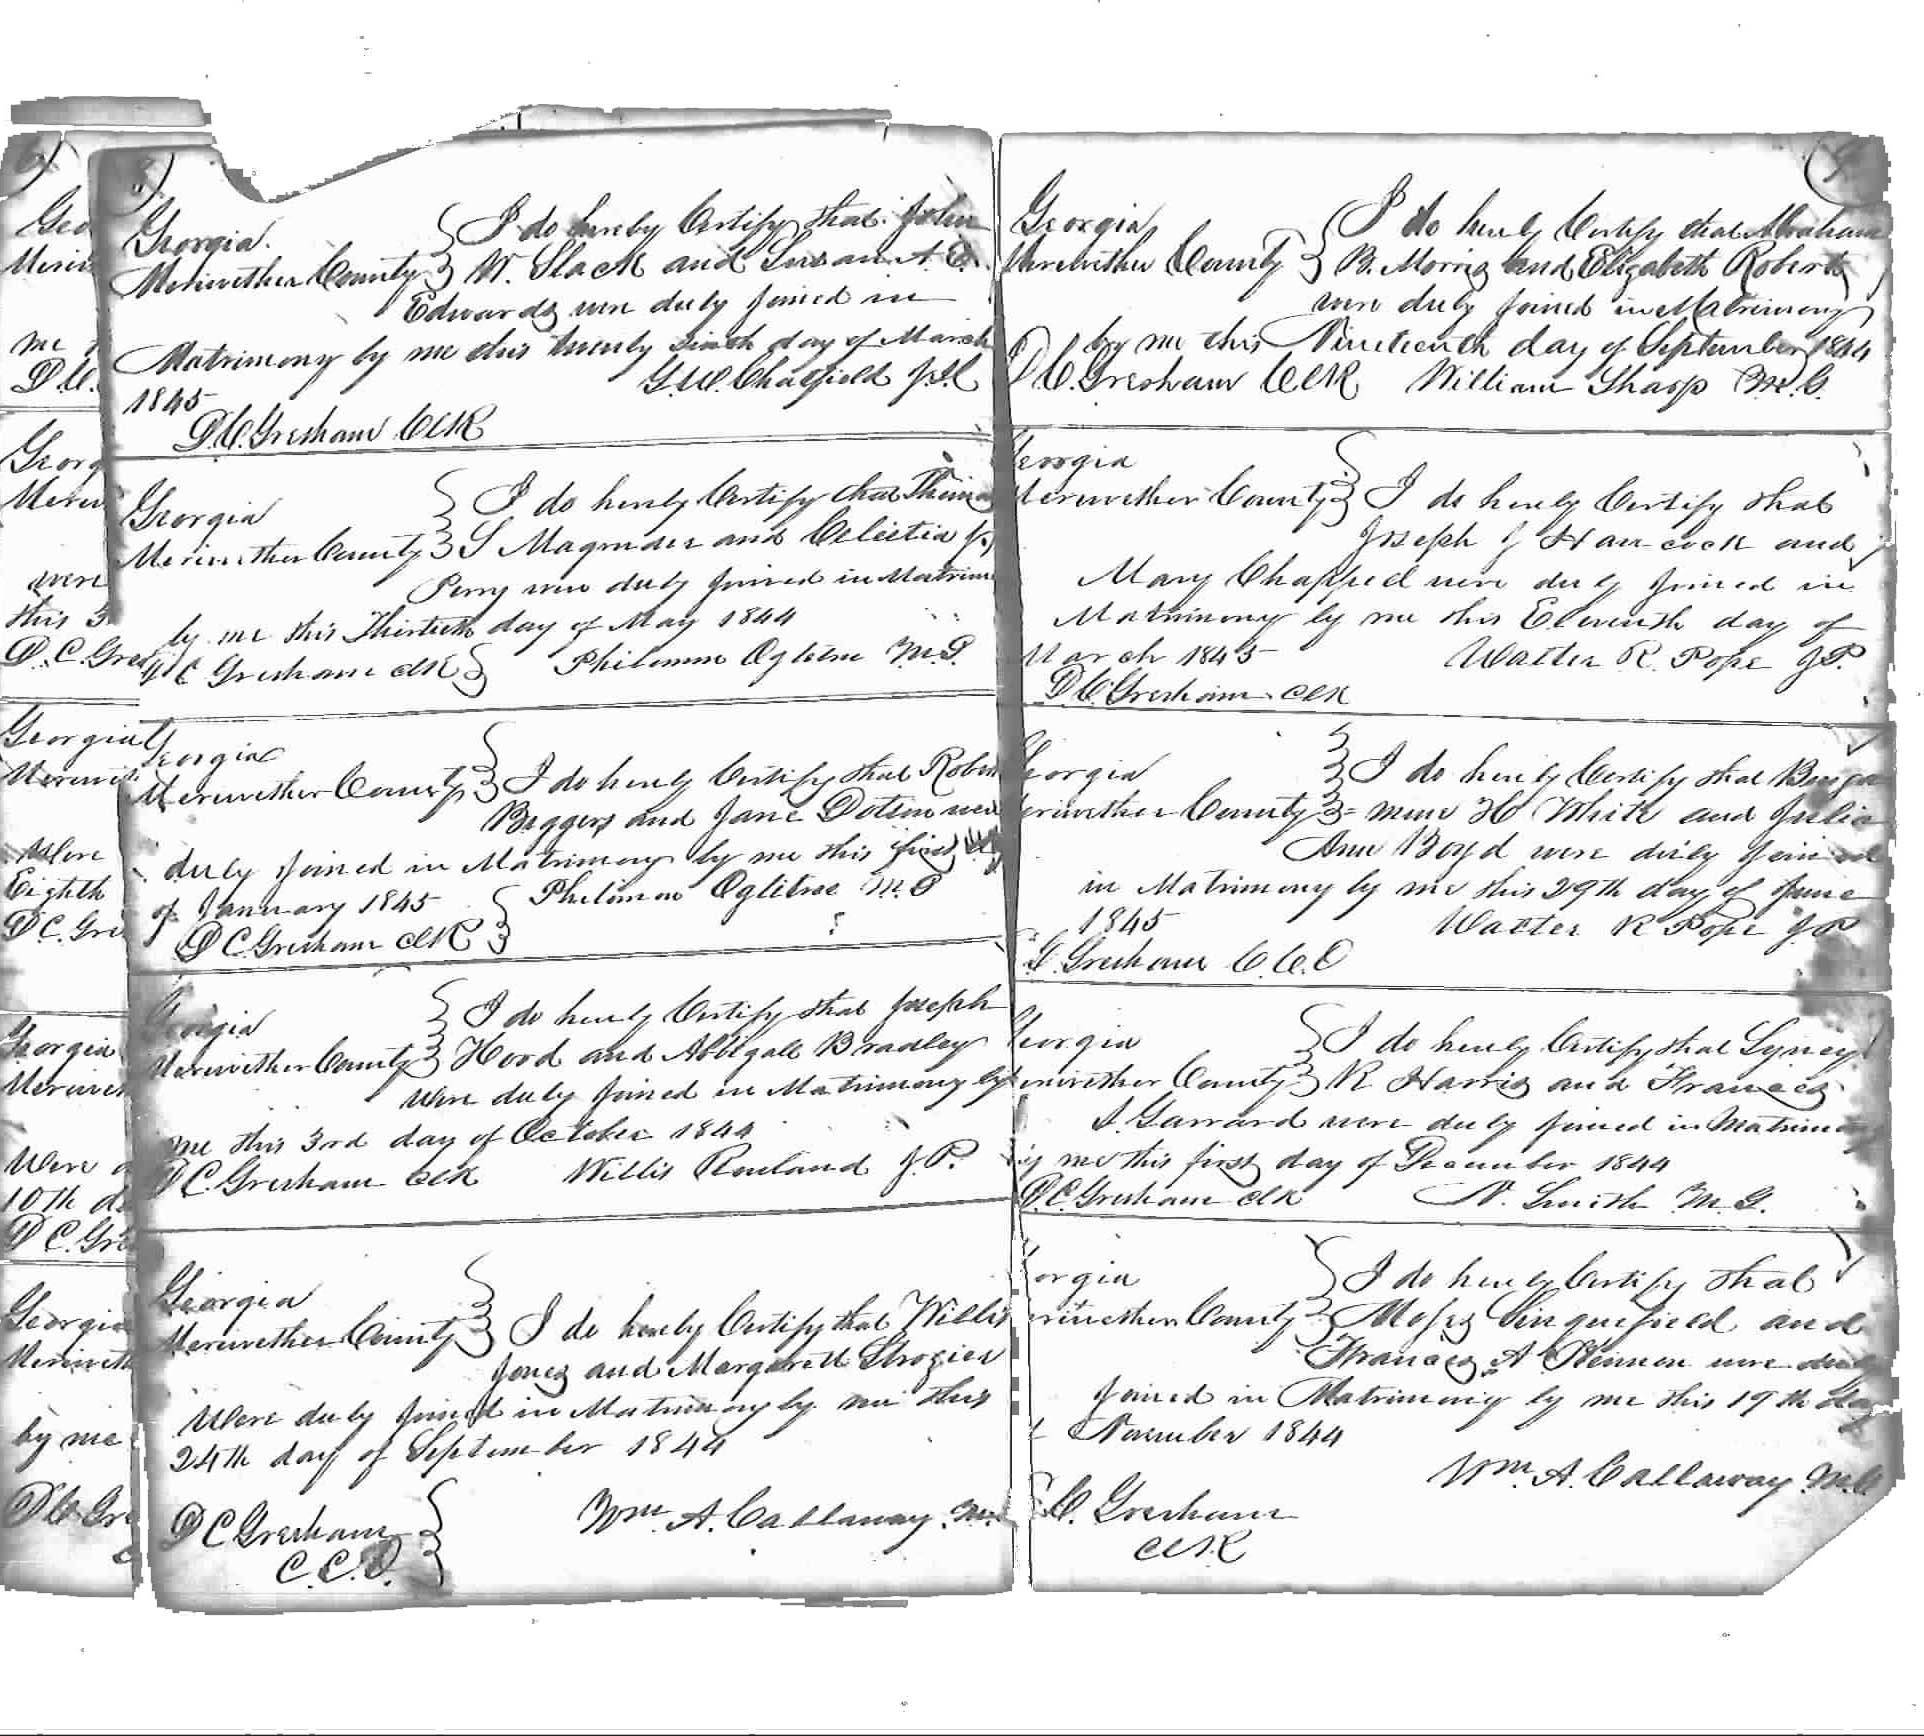 8)
Georgia
Meriwether County
I do hereby Certify that John
W. Slack and Susan A. E.
Edwards were duly joined in
Matrimony by me this twenty Sixth day of March
1845
G. W. Chatfield J.I.C
D. C. Gresham Clk
Georgia
Meriwether County
I do hereby Certify that Thomas
S Magruder and Celestia J.
Perry were duly joined in Matrimo
by me this Thirtieth day of May 1844
D C Gresham Clk
Philemon Ogletree M.G.
Georgia
Meriwether County
I do hereby Certify that Robert
Biggers and Jane Dotson were
duly joined in Matrimony by me this first day
of January 1845
Philemon Ogletree M.G
D C Gresham Clk
Georgia
Meriwether County
I do hereby Certify that Joseph
Hood and Abbigall Bradley
were duly joined in Matrimony by
me this 3rd day of October 1844
D C. Gresham Clk
Willis Rowland J.P.
Georgia
Meriwether County
I do hereby Certify that Willis
Jones and Margarett Strozier
Were duly joined in Matrimony by me this
24th day of September 1844
D C Gresham
C.C.O.
Wm. A. Callaway M.
(9
Georgia
Meriwether County
I do hereby Certify that Abraham
B. Morris and Elizabeth Roberts
were duly joined in Matrimony
by me this Nineteenth day of September 1844
D C. Gresham Clk William Sharp M.G.
Georgia
Meriwether County
I do hereby Certify that
Joseph J Hancock and
Mary Chappel were duly joined in
Matrimony by me this Eleventh day of
March 1845
Walter R. Pope J.P.
D C. Gresham Clk
Georgia
Meriwether County
I do hereby Certify that Benja
=mine H White and Julia
Ann Boyd were duly joined
in Matrimony by me this 29th day of June
1845
Walter R Pope J P
Gresham C.C.O
Georgia
Meriwether County
I do hereby Certify that Lyney
R Harris and Frances
S. Garrard were duly joined in Matrimony
by me this first day of December 1844
D. C. Gresham Clk
N. Smith M.G.
orgia
eriwether County
I do hereby Certify that
Moses Singuefield and
Frances A Kennon were duly
joined in Matrimony by me this 19th day
November 1844
Wm. A. Callaway M.G
C. Gresham
Clk